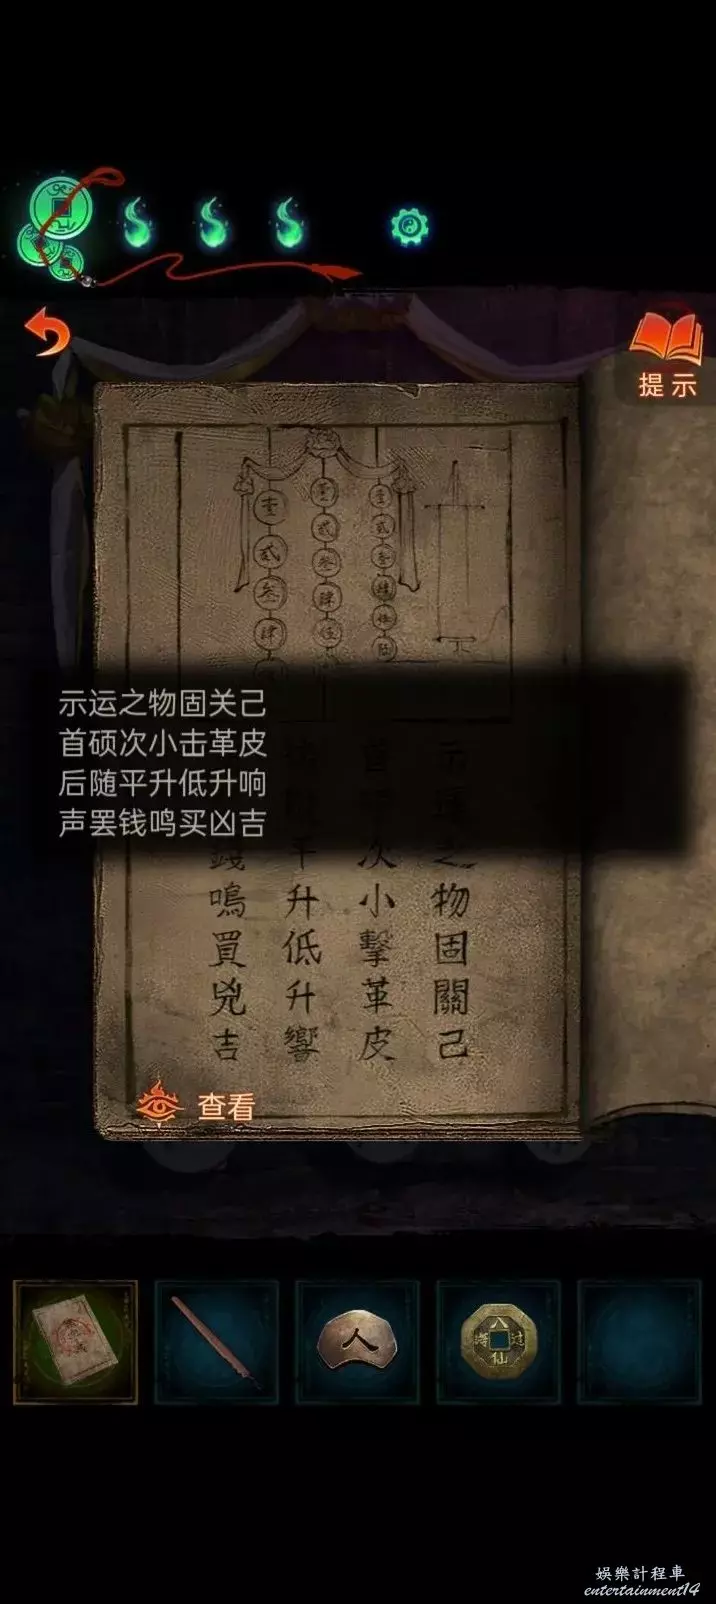 提示
壹 壹 壹
贰 贰 贰
叁 叁 叁
肆 肆 肆
伍 伍
陆
示运之物固关己
首硕次小击革皮
后随平升低升响
声罢钱鸣买凶吉
物固關己
次小擊革皮
升低升響
錢鳴買兇吉
查看
人
八仙
娛樂計程車
entertainment14